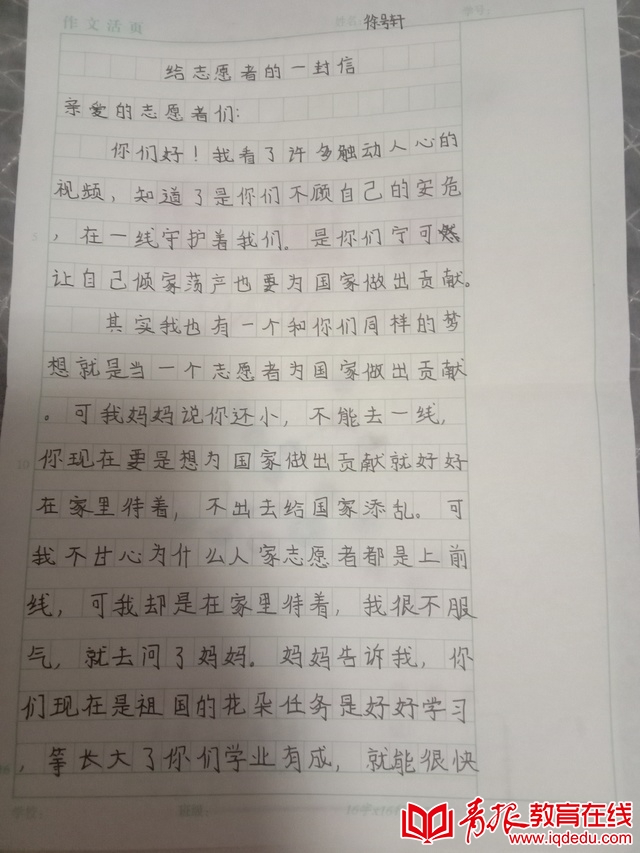 作文活页
徐号轩
给志愿者的一封信
亲爱的志愿者们：
你们好！我看了许多触动人心的
视频，知道了是你们不顾自己的安危
，在一线守护着我们。是你们宁可
让自己倾家荡产也要为国家做出贡献。
其实我也有一个和你们同样的梦
想就是当一个志愿者为国家做出贡献
。可我妈妈说你还小，不能去一线，
你现在要是想为国家做出贡献就好好
在家里待着，不出去给国家添乱。可
我不甘心为什么人家志愿者都是上前
线，可我却是在家里待着，我很不服
气，就去问了妈妈。妈妈告诉我，你
们现在是祖国的花朵任务是好好学习
，等长大了你们学业有成，就能很快
青报教育在线
www.iqdedu.com